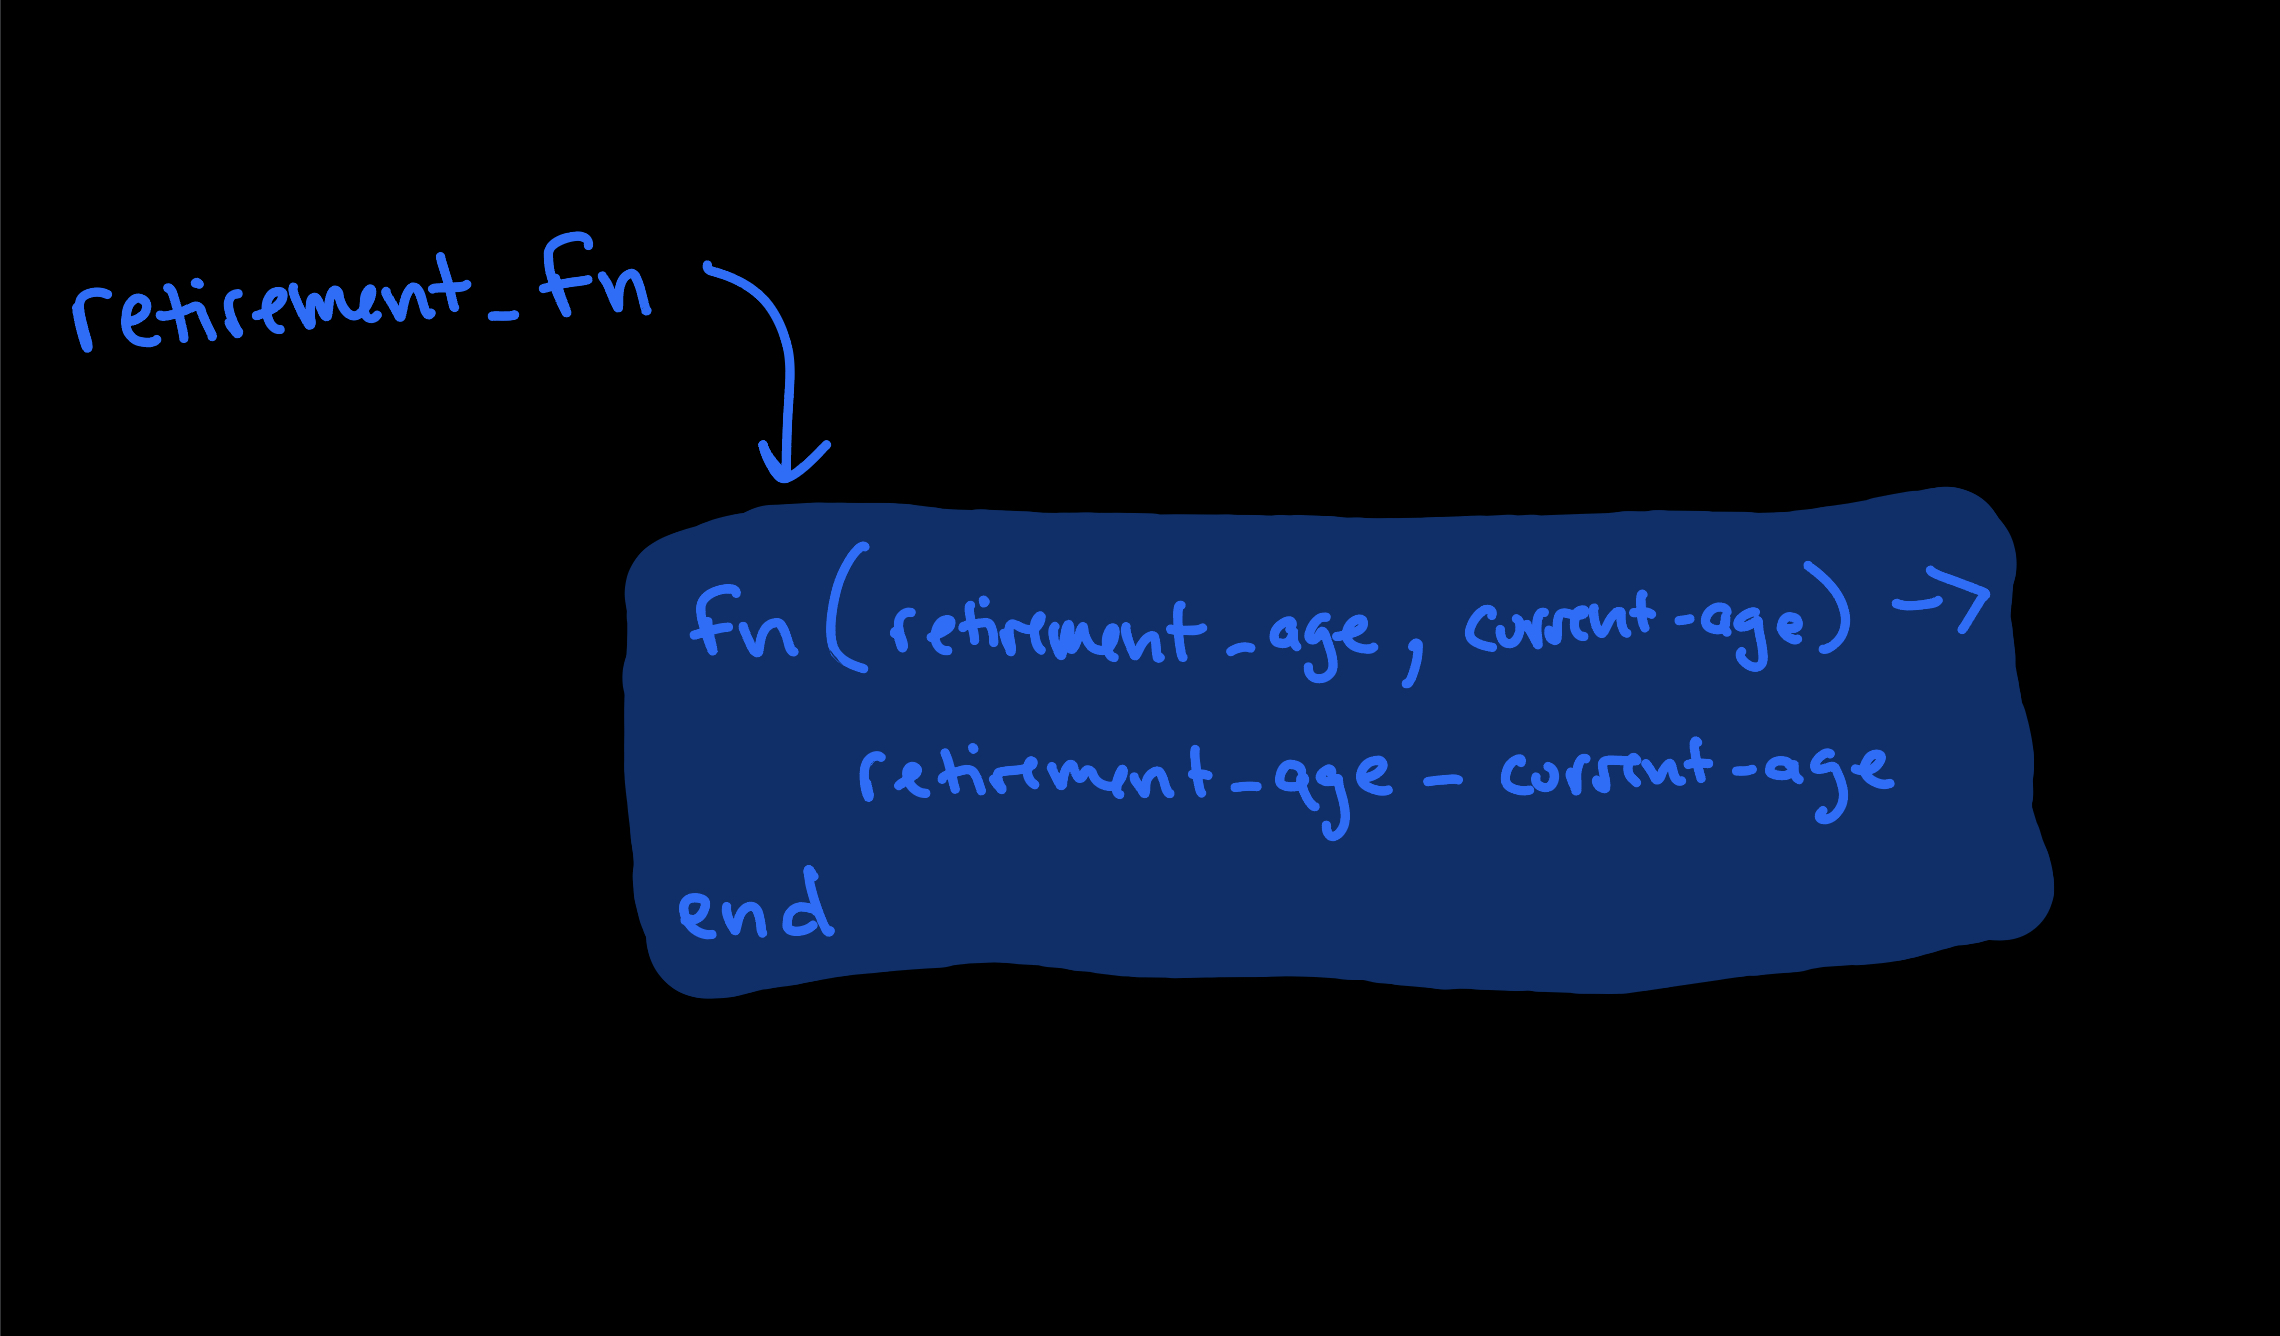 retirement_fn
fn(retirement_age, current_age) ->
retirement_age - current_age
end